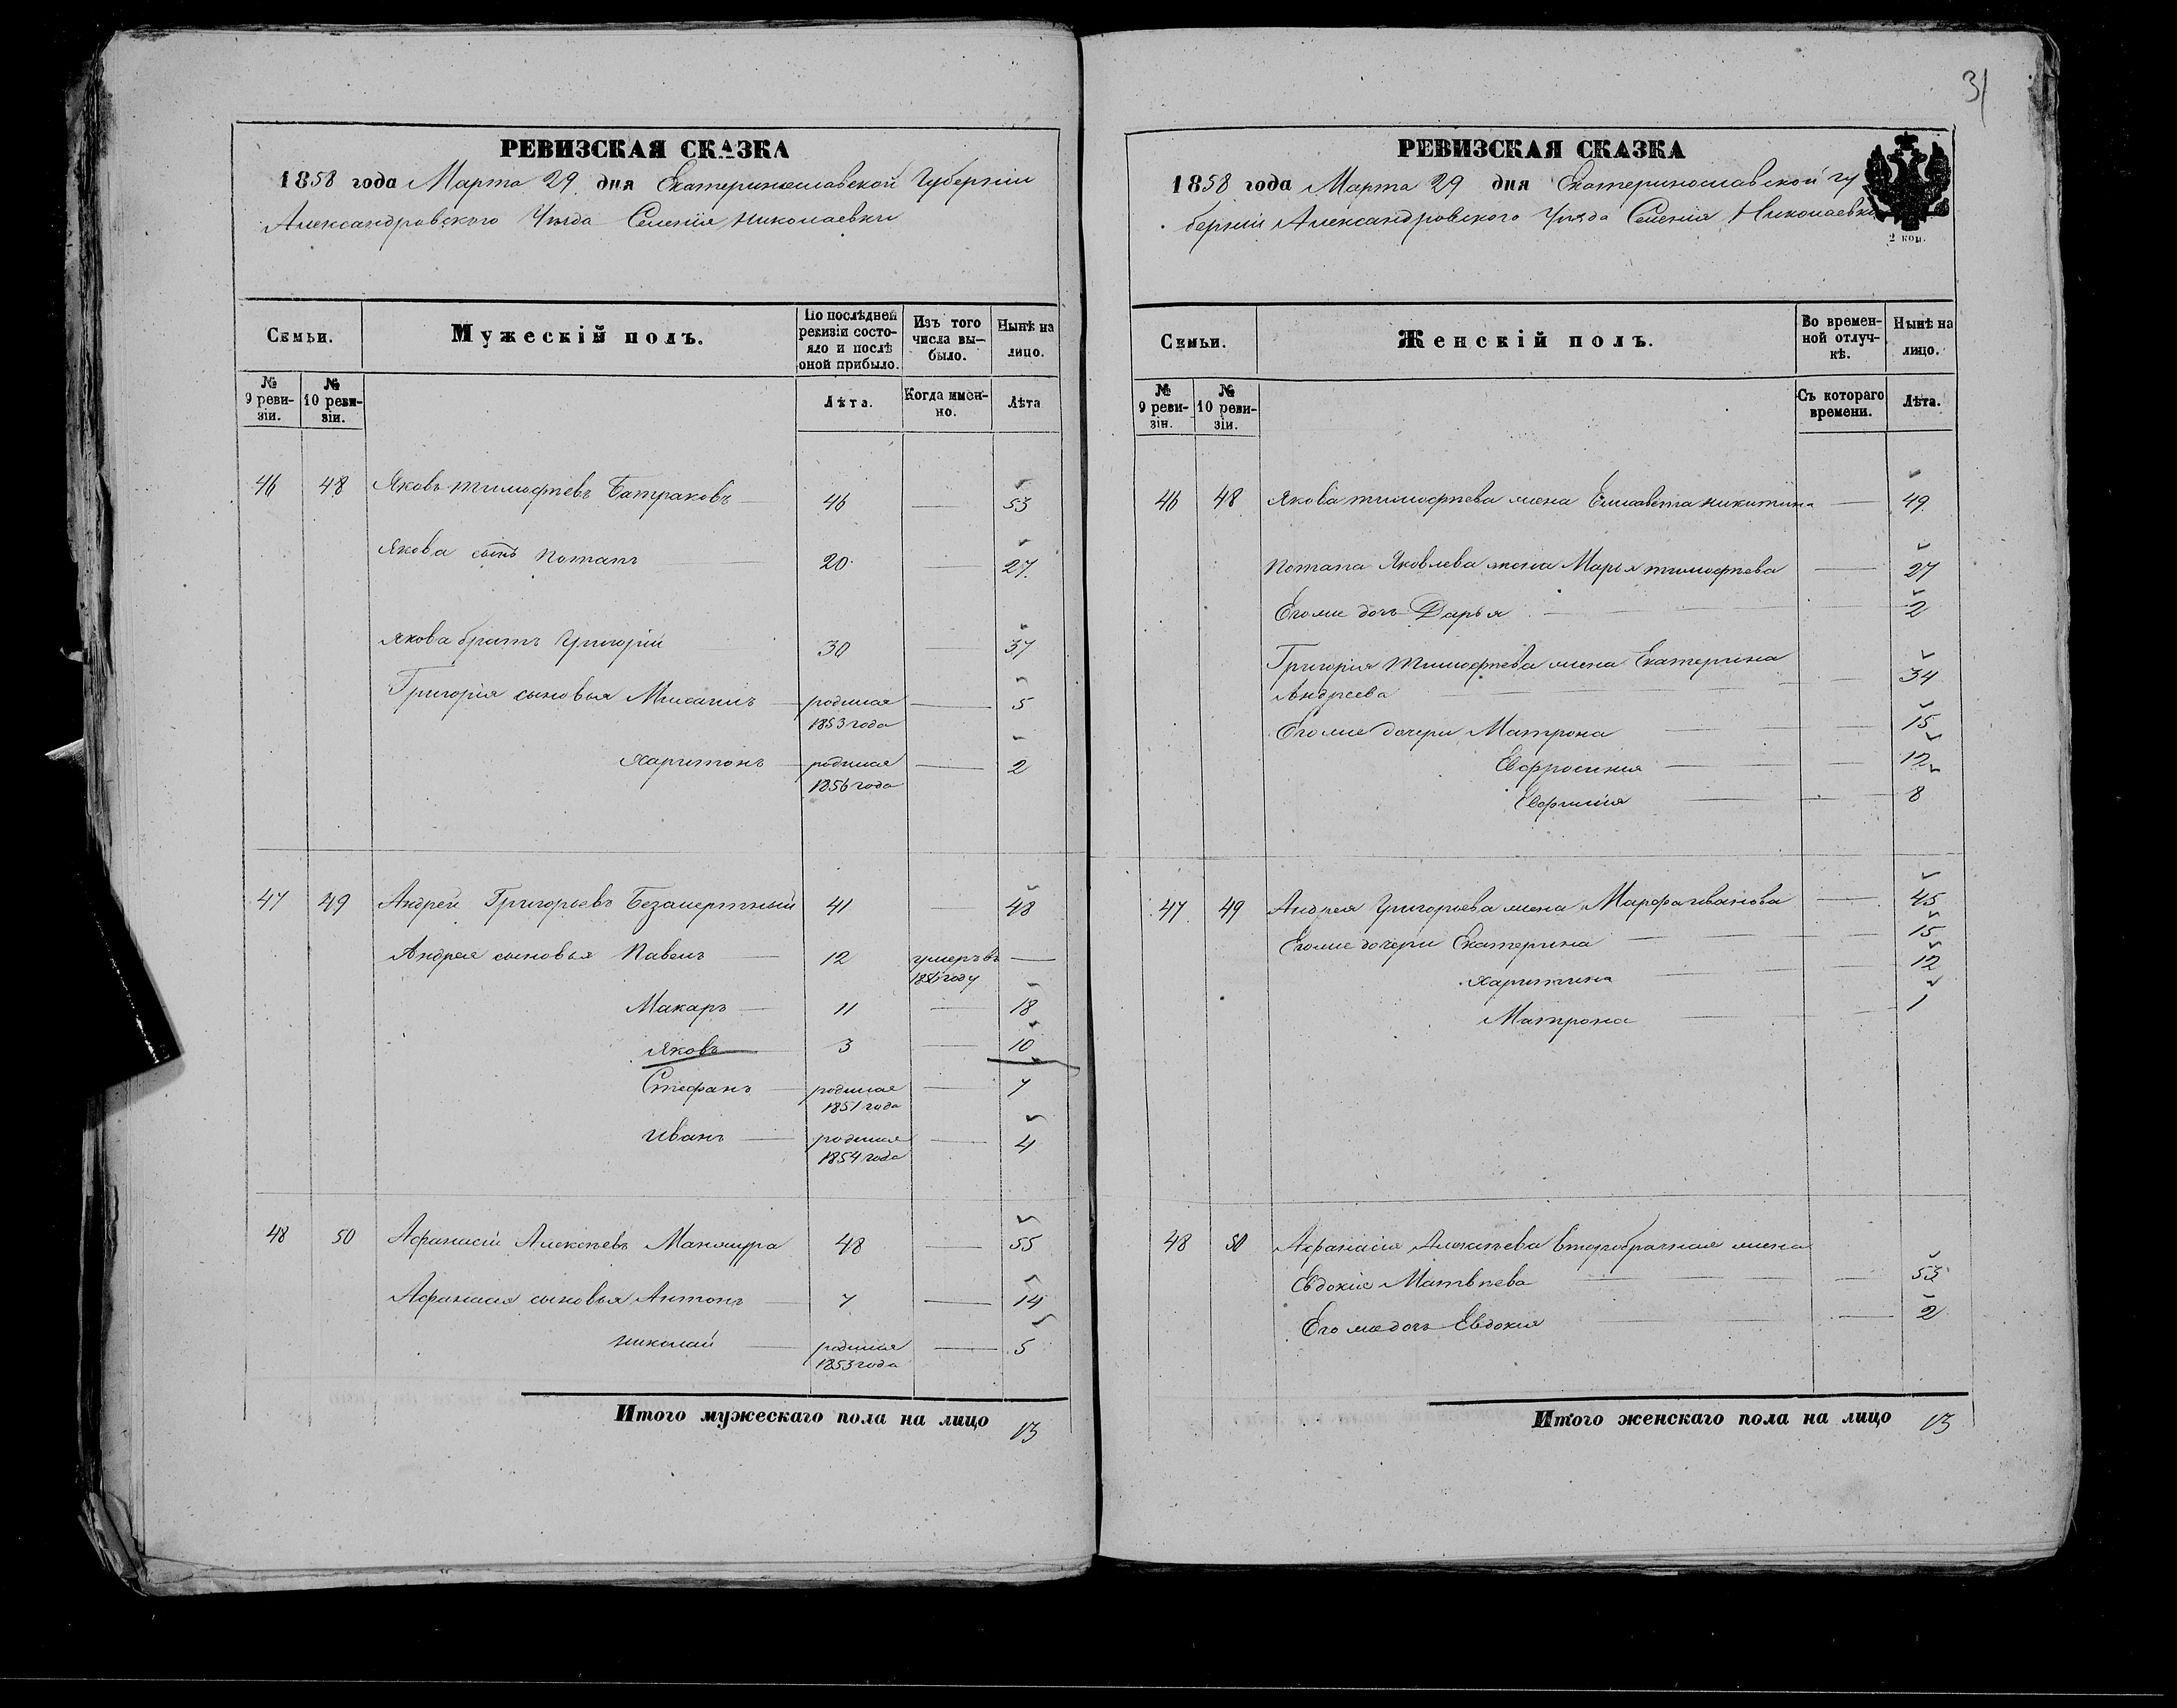 31
РЕВИЗСКАЯ СКАЗКА
1858 года Марта 29 дня Екатеринославской Губерніи
Александровского Уезда Селенія Николаевки
Семьи.
Мужескій полъ.
По послѣдней ревизіи состояло и послѣ оной прибыло.
Изъ того числа выбыло.
Нынѣ на лицо.
№ 9 ревизіи.
№ 10 ревизіи.
Лѣта.
Когда именно.
Лѣта
46 48 Яковъ Тимофѣевъ Батраковъ 46 — 53
Якова сынъ Потапъ 20 — 27
Якова братъ Григорій 30 — 37
Григорія сыновья Михаилъ родился 1853 года — 5
Харитонъ родился 1856 года — 2
47 49 Андрей Григорьевъ Безсмертный 41 — 48
Андрея сыновья Павелъ 12 умеръ въ году —
Макаръ 11 — 18
Яковъ 3 — 10
Стефанъ родился 1851 года — 7
Иванъ родился 1854 года — 4
48 50 Афанасій Алексѣевъ 48 — 55
Афанасія сыновья Антонъ 7 — 14
Николай родился 1853 года — 5
Итого мужескаго пола на лицо 13
РЕВИЗСКАЯ СКАЗКА
1858 года Марта 29 дня Екатеринославской гу
берніи Александровского Уѣзда Селенія Николаевки
2 коп.
Семьи.
Женскій полъ.
Во временной отлучкѣ.
Нынѣ на лицо.
№ 9 ревизіи.
№ 10 ревизіи.
Съ котораго времени.
Лѣта.
46 48 Якова Тимофѣева жена Елисавета Никитина — 49
Потапа Яковлева жена Марья Тимофѣева — 27
Егоже дочь Дарья — 2
Григорія Тимофѣева жена Екатерина
Андреева — 34
Егоже дочери Матрона — 15
Евфросинія — 12
Евфимія — 8
47 49 Андрея Григорьева жена Марфа Иванова — 45
Егоже дочери Екатерина — 15
Харитина — 12
Матрона — 1
48 50 Афанасія Алексѣева второбрачная жена
Евдокія Матвѣева — 53
Его же дочь Евдокія — 2
Итого женскаго пола на лицо 13